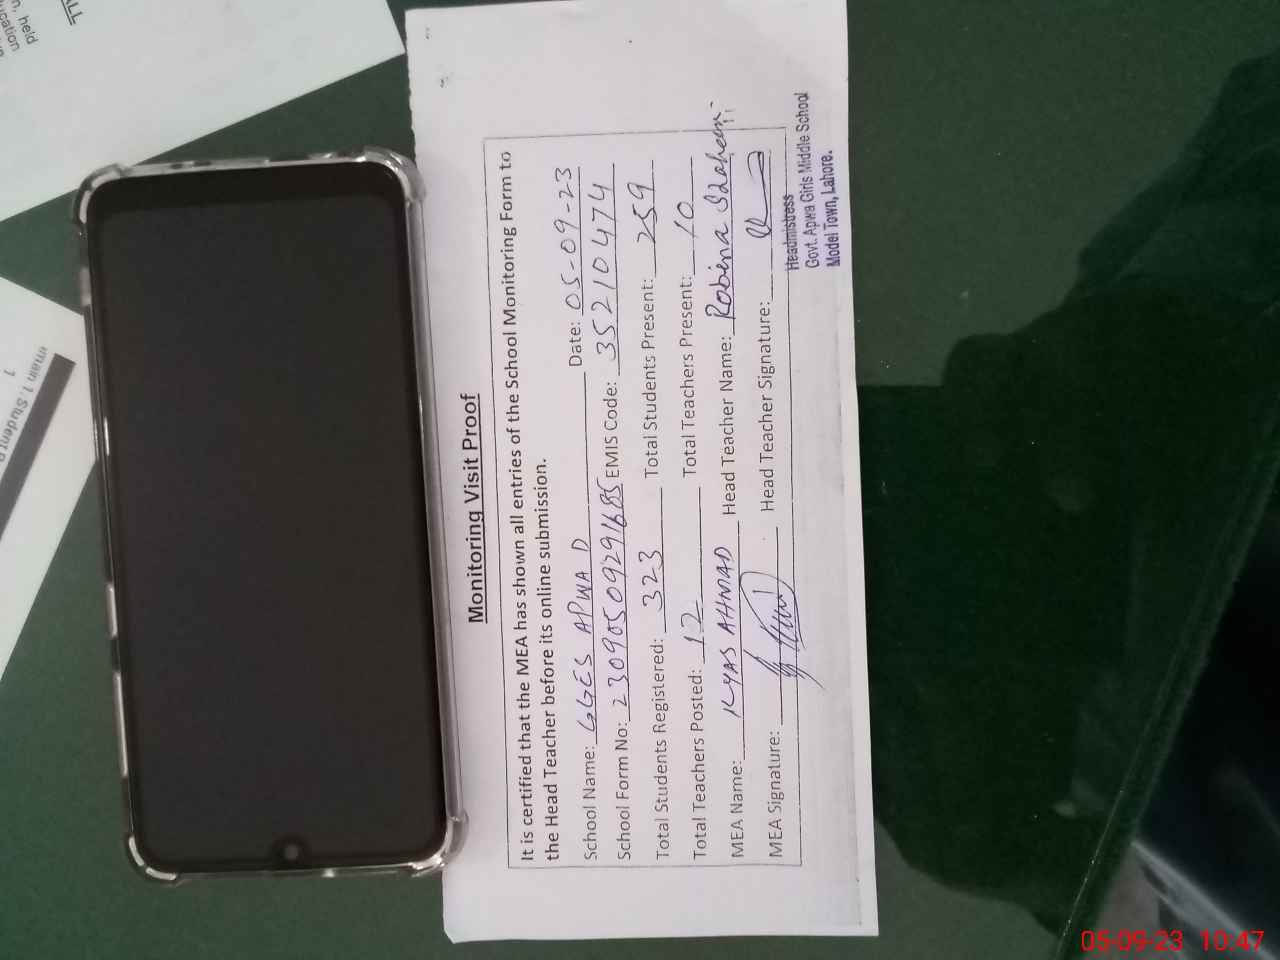 Monitoring Visit Proof
It is certified that the MEA has shown all entries of the School Monitoring Form to
the Head Teacher before its online submission.
School Name: GGES APWA D Date: 05-09-23
School Form No: 23090509291685 EMIS Code: 35210474
Total Students Registered: 323 Total Students Present: 259
Total Teachers Posted: 12 Total Teachers Present: 10
MEA Name: ILYAS AHMAD Head Teacher Name: Robina Shaheen
MEA Signature: Head Teacher Signature:
Headmistress
Govt. Apwa Girls Middle School
Model Town, Lahore.
held
05-09-23 10:47